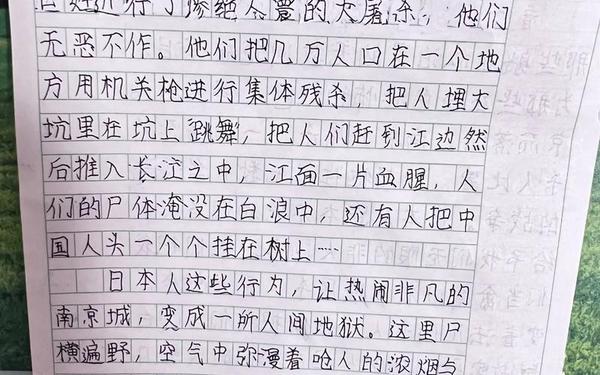 百姓进行了惨绝人寰的大屠杀，他们
无恶不作。他们把几万人口在一个地
方用机关枪进行集体残杀，把人埋大
坑里在坑上跳舞，把人们赶到江边然
后推入长江之中，江面一片血腥，人
们的尸体淹没在白浪中，还有人把中
国人头一个个挂在树上……
日本人这些行为，让热闹非凡的
南京城，变成一所人间地狱。这里尸
横遍野，空气中弥漫着呛人的浓烟与